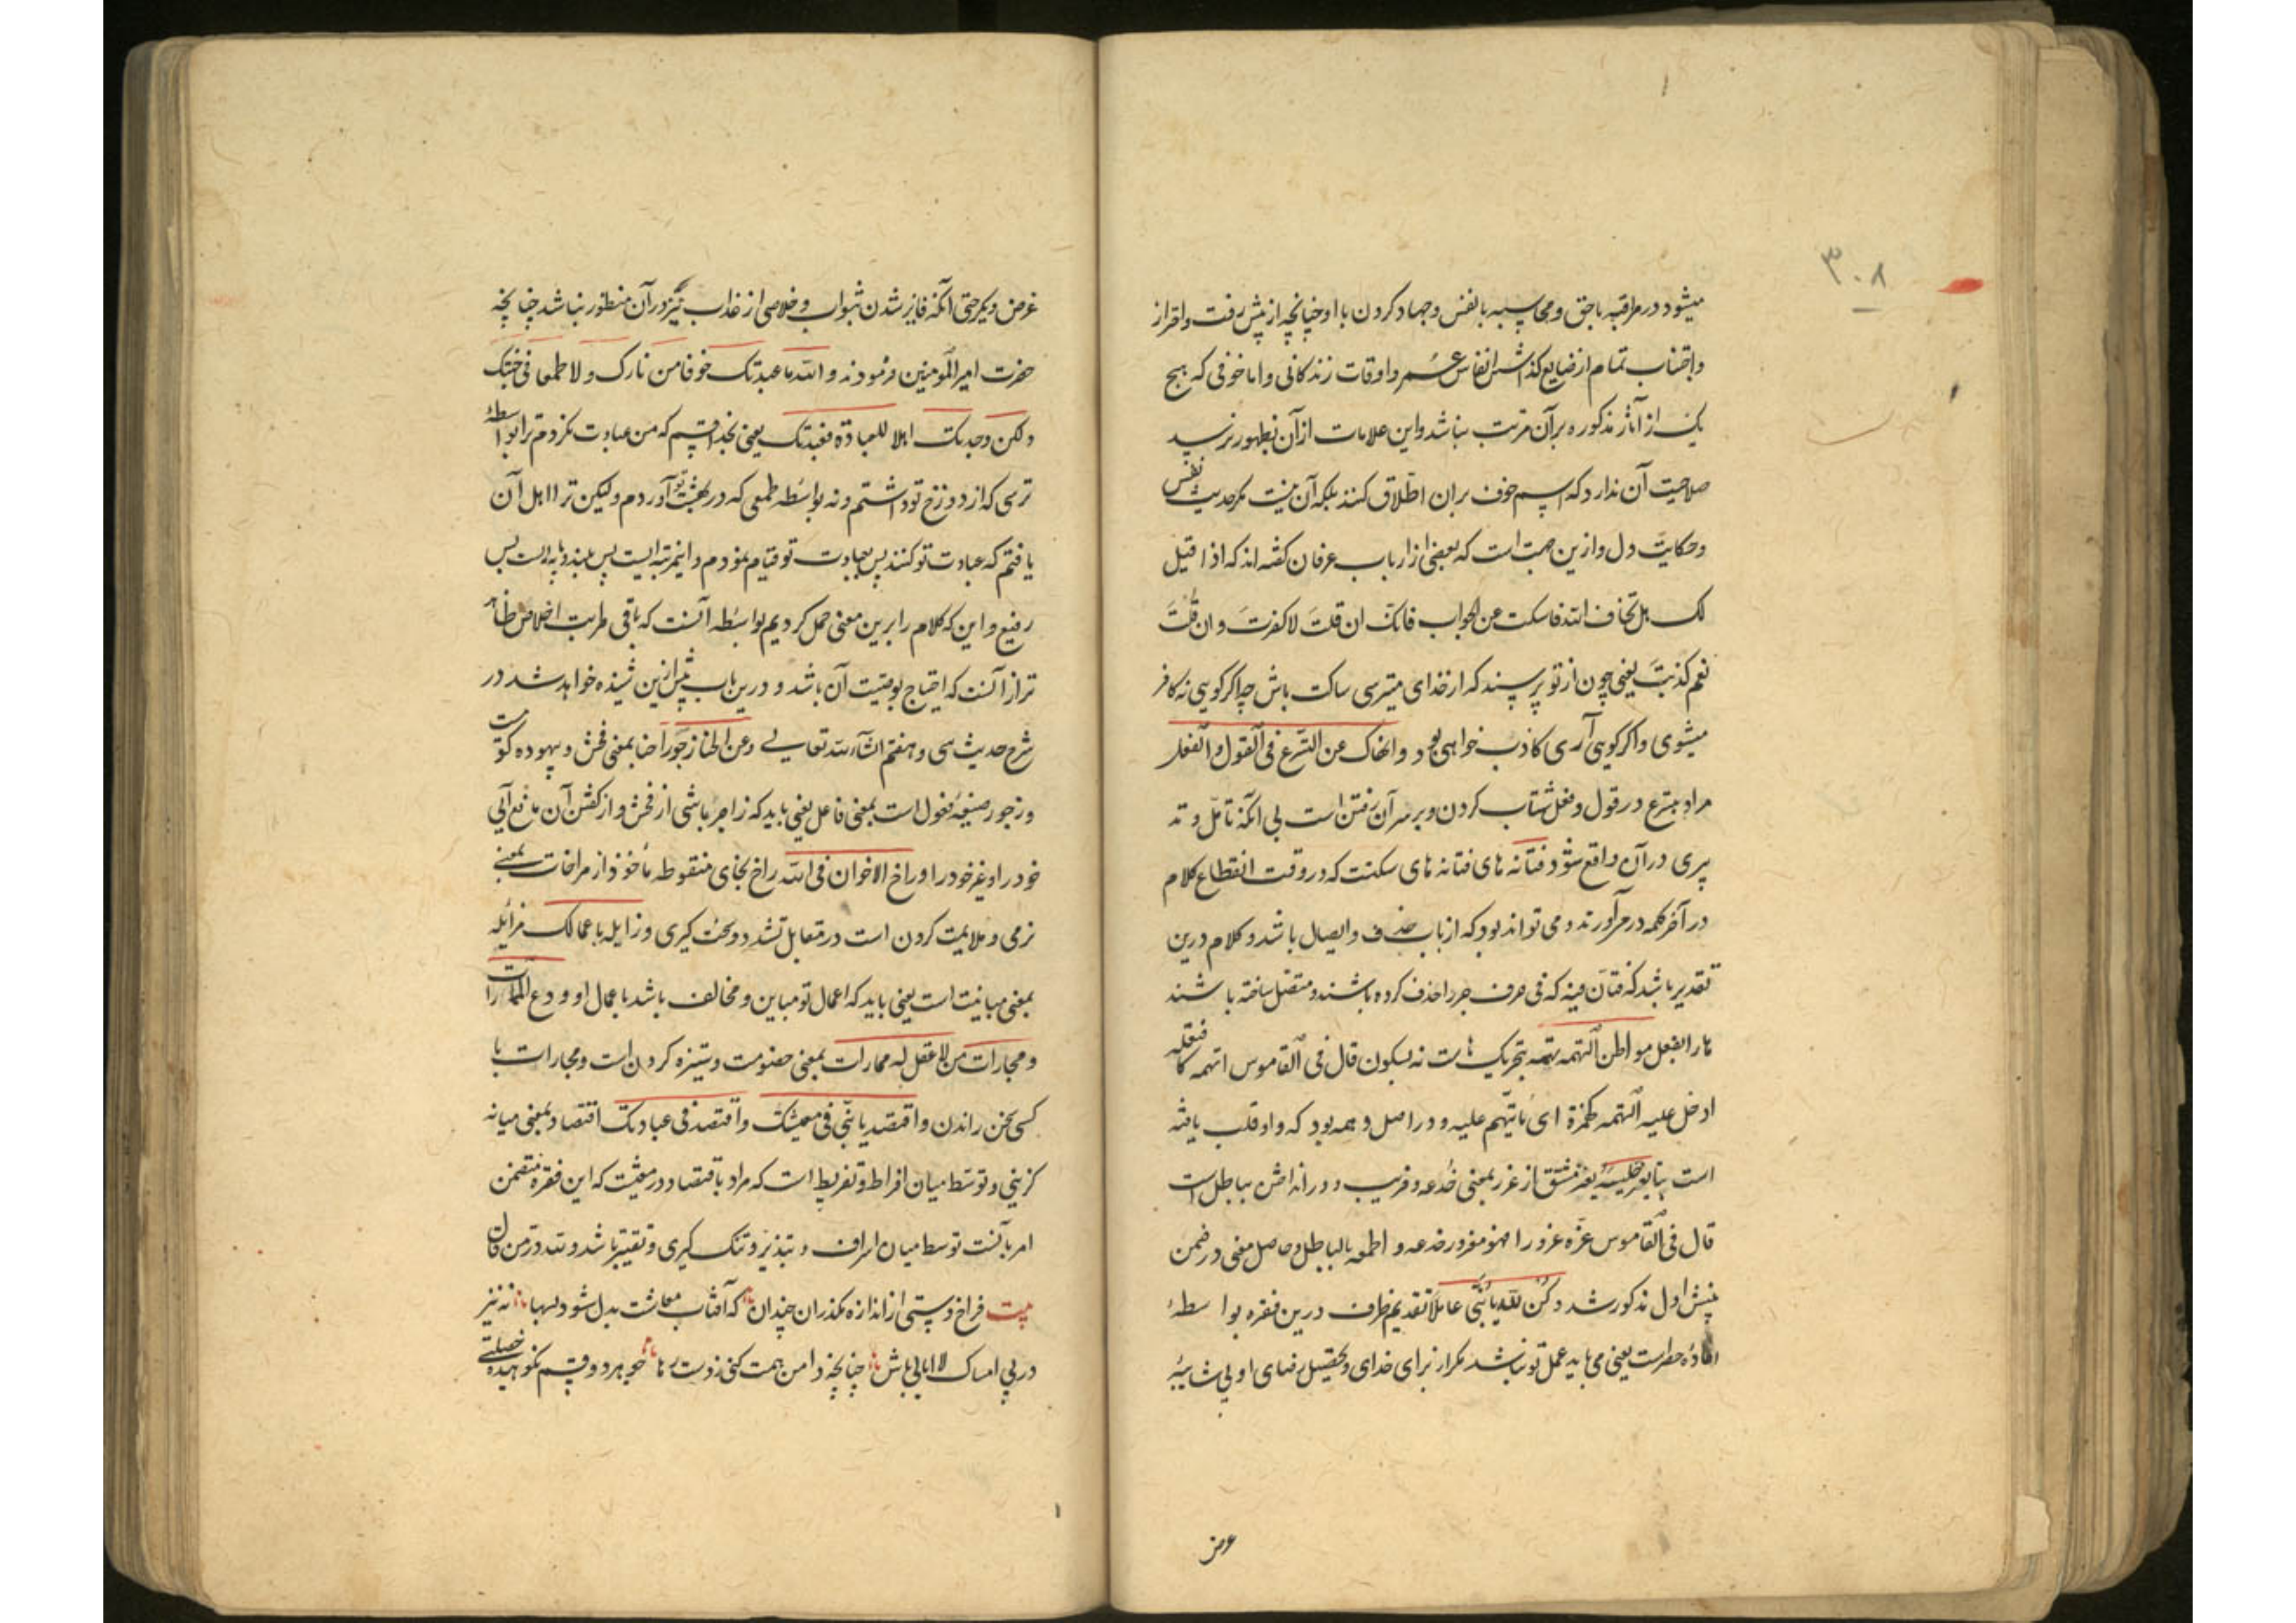 ۳۰۸
میشود در مراقبه با حق و محاسبه با نفس و جهاد کردن با او چنانچه از پیش رفت و احتراز
و اجتناب تمام از ضایع گذاشتن انفاس عمر و اوقات زندگانی و اما خوفی که هیچ
یک از آثار مذکوره بر آن مرتب نباشد و این علامات از آن بظهور نرسد
صلاحیت آن ندارد که اسم خوف بران اطلاق کنند بلکه آن نیست مگر حدیث نفس
و حکایت دل و ازین جهت است که بعضی از ارباب عرفان گفته اند که اذا قیل
لک هل تخاف الله فاسکت عن الجواب فانک ان قلت لا کفرت و ان قلت
نعم کذبت یعنی چون از تو پرسند که از خدای میترسی ساکت باش چه اگر گویی نه کافر
میشوی و اگر گویی آری کاذب خواهی بود و انهاک عن التسرع فی القول و الفعل
مراد بتسرع در قول و فعل شتاب کردن و بر سر آن رفتن است بی آنکه تامل و تد
بیری در آن واقع شود فتانه های فتانه های سکتت که در وقت انقطاع کلام
در آخر کلمه در می‌آورند و می تواند بود که از باب حذف و ایصال باشد و کلام درین
تقدیر باشد که فتان فیه که فی حرف جر را حذف کرده باشند و متصل ساخته باشند
ها را بفعل مواطن التهمه تهمه بتحریک هاست نه بسکون قال فی القاموس اتهمه کافتعله
ادخل علیه التهمه کهمزة ای ما یتهم علیه و در اصل وهمه بود که واو قلب یافته
است بتا یغر جلیسه یغر مشتق از غرر بمعنی خدعه و فریب و در انداختن بباطل است
قال فی القاموس غره غرورا فهو مغرور خدعه و اطمعه بالباطل و حاصل معنی در ضمن
پیش اول مذکور شد و کن لله یا بنی عاملا تقدیم ظرف درین فقره بواسطهٔ
افادهٔ حصر است یعنی می باید عمل تو نباشد مگر از برای خدای و تحصیل رضای او بی شایبهٔ
غرض
غرض دیگر حتی آنکه فایز شدن بثواب و خلاصی از عذاب نیز در آن منظور نباشد چنانچه
حضرت امیر المومنین فرمودند و الله ما عبدتک خوفا من نارک و لا طمعا فی جنتک
و لکن وجدتک اهلا للعبادة فعبدتک یعنی بخدا قسم که من عبادت نکردم ترا بواسطهٔ
ترسی که از دوزخ تو داشتم و نه بواسطه طمعی که در بهشت تو آوردم ولیکن ترا اهل آن
یافتم که عبادت تو کنند پس بعبادت تو قیام نمودم و این مرتبه ایست پس بلند و پایه ایست بس
رفیع و این که کلام را برین معنی حمل کردیم بواسطه آنست که باقی مراتب اخلاص ظاهر
تر از آنست که احتیاج بوصیت آن باشد و درین باب پیش ازین شنیده خواهد شد در
شرح حدیث سی و هفتم انشاء الله تعالی و عن الخنا زجورا خنا بمعنی فحش و بیهوده گوئیست
و زجور صیغهٔ فعول است بمعنی فاعل یعنی باید که زاجر باشی از فحش و از گفتن آن مانع آیی
خود را و غیر خود را و راخ الاخوان فی الله راخ بخای منقوطه مأخوذ از مراخات بمعنی
نرمی و ملایمت کردن است در مقابل تشدد و سخت گیری و زایله باعمالک مزایله
بمعنی مباینت است یعنی باید که اعمال تو مباین و مخالف باشد باعمال او و دع المماراة
و مجارات من لا عقل له ممارات بمعنی خصومت و ستیزه کردن است و مجارات با
کسی سخن راندن و اقتصد یا بنی فی معیشتک و اقتصد فی عبادتک اقتصاد بمعنی میانه
گزینی و توسط میان افراط و تفریط است که مراد باقتصاد در معیشت که این فقره متضمن
امر بآنست توسط میان اسراف و تبذیر و تنگ گیری و تقتیر باشد و لله در من قال
بیت فراخ دستی از اندازه مگذران چندان که آفتاب معاشت بدل شود بسها نه نیز
در پی امساک لاابالی باش چنانچه دامن همت کنی ز دست رها چو هر دو قسم نکوهیده خصلتی